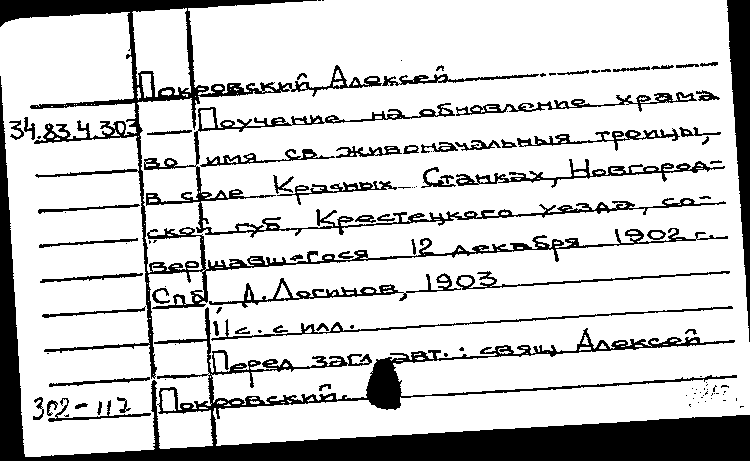 Покровский, Алексей
34.83.4.303 Поучение на обновление храма
во имя св. живоначальныя троицы,
в селе Красных Станках, Новгород-
ской губ, Крестецкого уезда, со-
вершавшегося 12 декабря 1902 г.
Спб, Д. Логинов, 1903.
11 с. с илл.
Перед загл. авт.: свящ. Алексей
302-117 Покровский.